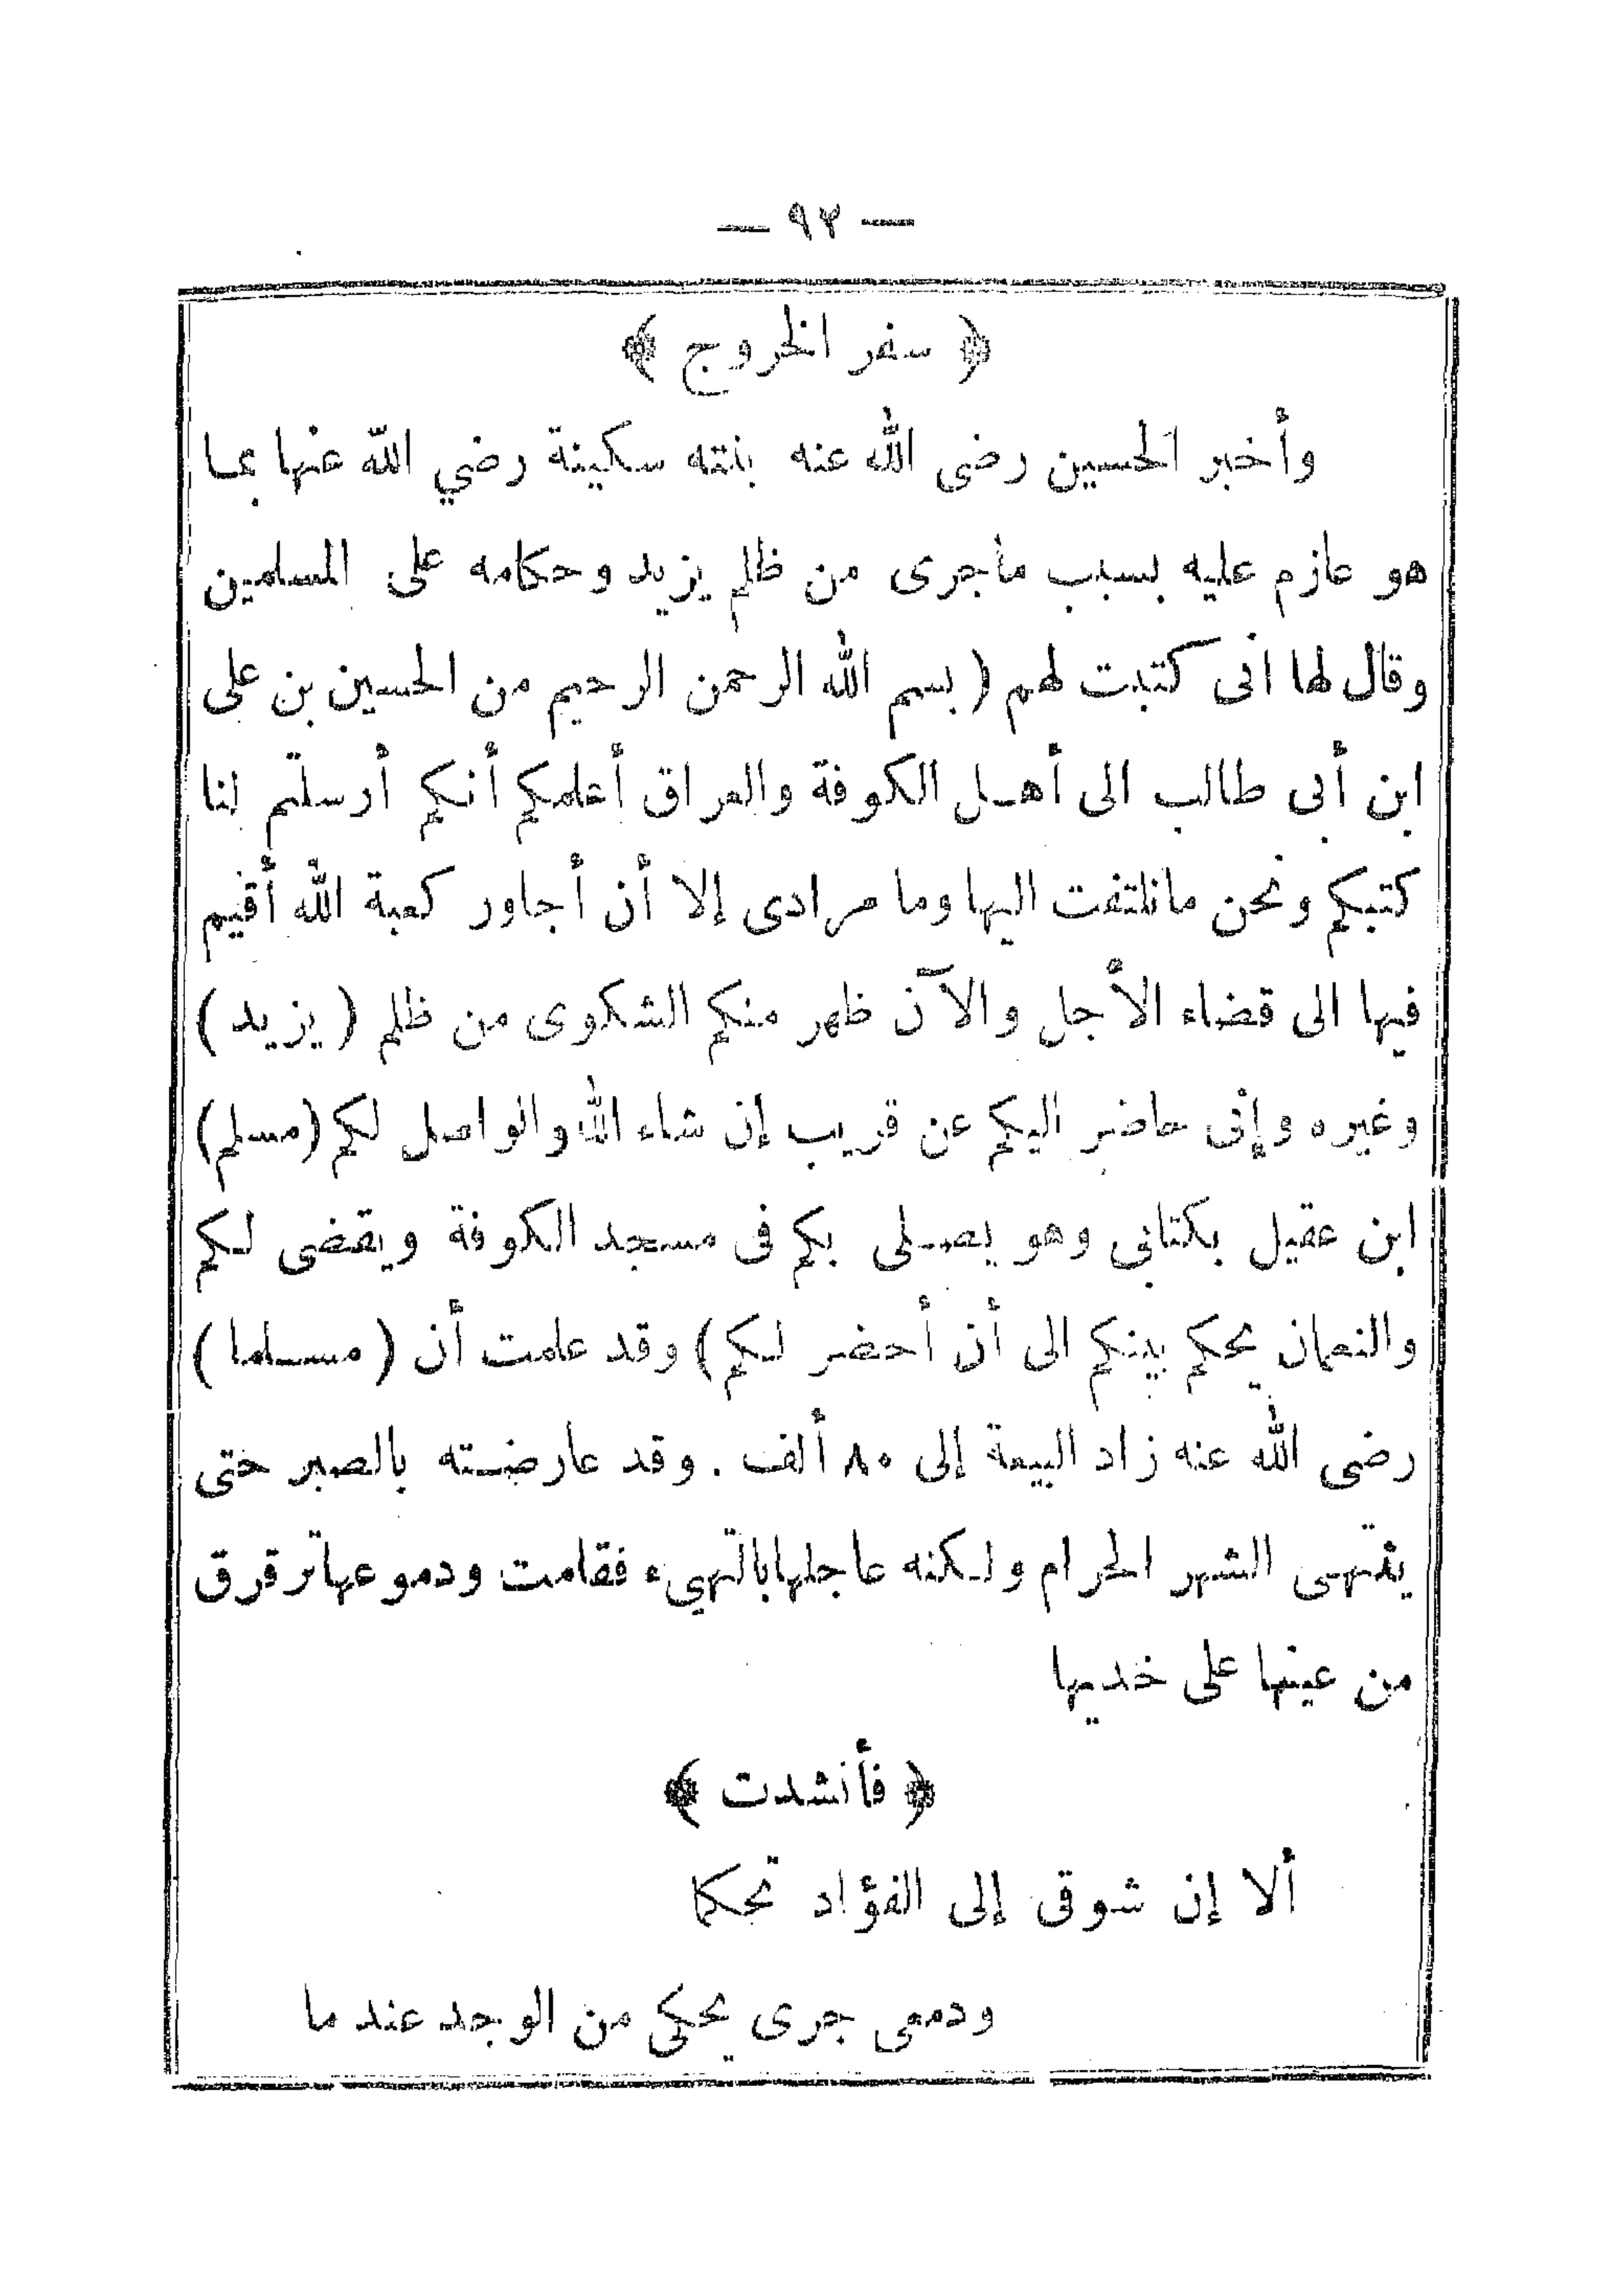 — ٩٣ —
﴿ سفر الخروج ﴾
وأخبر الحسين رضى الله عنه بنته سكينة رضي الله عنها بما
هو عازم عليه بسبب ماجرى من ظلم يزيد وحكامه على المسلمين
وقال لها انى كتبت لهم ( بسم الله الرحمن الرحيم من الحسين بن على
ابن أبى طالب الى أهل الكوفة والعراق أعلمكم أنكم أرسلتم لنا
كتبكم ونحن مانلتفت اليها وما مرادى إلا أن أجاور كعبة الله أقيم
فيها الى قضاء الأجل والآن ظهر منكم الشكوى من ظلم ( يزيد )
وغيره وإنى حاضر اليكم عن قريب إن شاء الله والواصل لكم (مسلم)
ابن عقيل بكتابى وهو يصلى بكم فى مسجد الكوفة ويقضى لكم
والنعمان يحكم بينكم الى أن أحضر لكم) وقد علمت أن ( مسلما )
رضى الله عنه زاد البيعة إلى ٨٠ ألف . وقد عارضته بالصبر حتى
ينتهى الشهر الحرام ولكنه عاجلها بالتهيء فقامت ودموعها تترقرق
من عينها على خديها
﴿ فأنشدت ﴾
ألا إن شوقى إلى الفؤاد تحكما
ودمعى جرى يحكى من الوجد عند ما